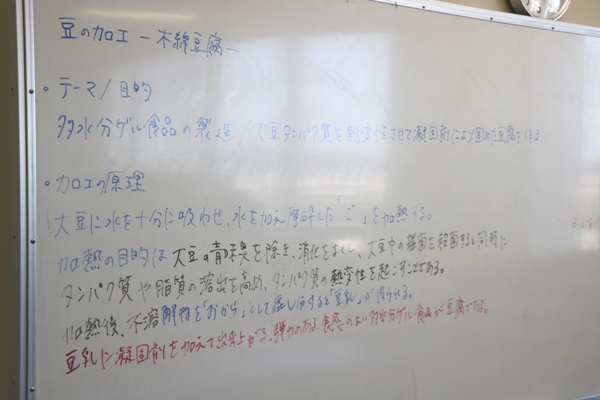 豆の加工 ー木綿豆腐ー
・テーマ/目的
多水分ゲル食品の製造/大豆タンパク質を熱変性させて凝固剤により固めた豆腐を作る
・加工の原理
大豆に水を十分に吸わせ、水を加え摩砕した「ご」を加熱する。
加熱の目的は大豆の青臭臭を除き、消化をよくし、大豆中の細菌を殺菌すると同時に
タンパク質や脂質の溶出を高め、タンパク質の熱変性を起こすことである。
加熱後、不溶解物を「おから」として濾し分けると「豆乳」が得られる。
豆乳に凝固剤を加えて出来上がる、弾力のある食感のよい多水分ゲル食品が豆腐である。